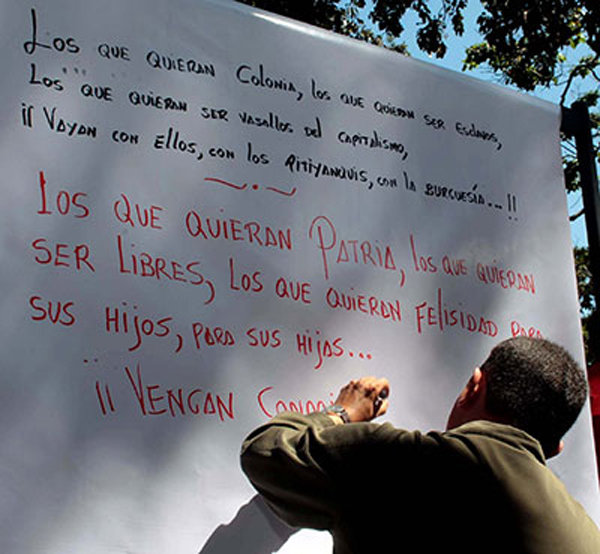 Los que quieran Colonia, los que quieran ser Esclavos,
Los que quieran ser vasallos del capitalismo,
¡¡ Vayan con Ellos, con los Pitiyanquis, con la burguesía...!!
Los que quieran Patria, los que quieran
ser libres, los que quieran felisidad para
sus hijos, para sus hijas...
¡¡ Vengan